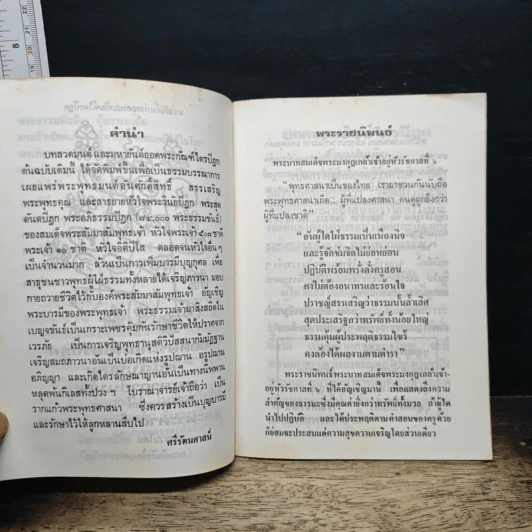 คำนำ
บทสวดมนต์ และมหายันต์ยอดพระกัณฑ์ไตรปิฎก
ต้นฉบับเดิมนี้ ได้จัดพิมพ์ขึ้นเพื่อเป็นธรรมบรรณาการ
เผยแพร่พระพุทธมนต์อันศักดิ์สิทธิ์ สรรเสริญ
พระพุทธคุณ และสาธยายหัวใจพระวินัยปิฎก พระสุต
ตันตปิฎก พระอภิธรรมปิฎก (๘๔,๐๐๐ พระธรรมขันธ์)
ของสมเด็จพระสัมมาสัมพุทธเจ้า หัวใจพระเจ้า ๕๐๐ ชาติ
พระเจ้า ๑๐ ชาติ หัวใจอิติปิโส ตลอดจนหัวใจอื่นๆ
เป็นจำนวนมาก ล้วนเป็นการเพิ่มบารมีบุญกุศล เพื่อ
สาธุชนชาวพุทธผู้ใฝ่ธรรมทั้งหลายได้เจริญภาวนา มอบ
กายถวายชีวิตไว้กับองค์พระสัมมาสัมพุทธเจ้า อัญเชิญ
พระบารมีของพระพุทธเจ้า พระธรรมเจ้ามาสิงสถิตใน
เบญจขันธ์เป็นเกราะเพชรคุ้มกันรักษาชีวิตให้ปราศจาก
เวรภัย เป็นการเจริญพุทธานุสติวิปัสสนากัมมัฏฐาน
เจริญสมถภาวนาอันเป็นบ่อเกิดแห่งรูปฌาน อรูปฌาน
อภิญญา และเกิดไตรลักษณาญาณอันเป็นทางนิพพาน
หลุดพ้นกิเลสทั้งปวง โบราณาจารย์เจ้าถือว่า เป็น
รากแก้วพระพุทธศาสนา ซึ่งควรสร้างเป็นบุญบารมี
และรักษาไว้ให้ลูกหลานสืบไป
ศรีรัตนศาสน์
พระราชนิพนธ์
พระบาทสมเด็จพระมงกุฎเกล้าเจ้าอยู่หัวรัชกาลที่ ๖
"พุทธศาสนาเป็นของไทย เรามาชวนกันนับถือ
พระพุทธศาสนาเถิด... ผู้ที่แปลงศาสนา คนดูถูกยิ่งกว่า
ผู้ที่แปลงชาติ"
"อันผู้ใดใฝ่ธรรมเป็นเนืองนิจ
และรู้จักข่มจิตไม่ย่อหย่อน
ปฏิบัติพร้อมพรั่งดั่งครูสอน
คงไม่ต้องอนาทรและร้อนใจ
ปราชญ์สรรเสริญว่าธรรมนั้นล้ำเลิศ
สุดประเสริฐกว่าทรัพย์ทั้งน้อยใหญ่
ธรรมคุ้มผู้ประพฤติธรรมไซร้
คงต้องได้ผลงามตามตำรา"
พระราชนิพนธ์พระบาทสมเด็จพระมงกุฎเกล้าเจ้า-
อยู่หัวรัชกาลที่ ๖ ที่ได้อัญเชิญมานี้ เพื่อแสดงความ
สำคัญของธรรมะซึ่งมีคุณค่ายิ่งกว่าทรัพย์ทั้งมวล ถ้าใคร
นำไปปฏิบัติ และได้ประพฤติตามคำสอนของครูด้วย
ก็ย่อมจะประสบแต่ความสุขความเจริญโดยส่วนเดียว
8